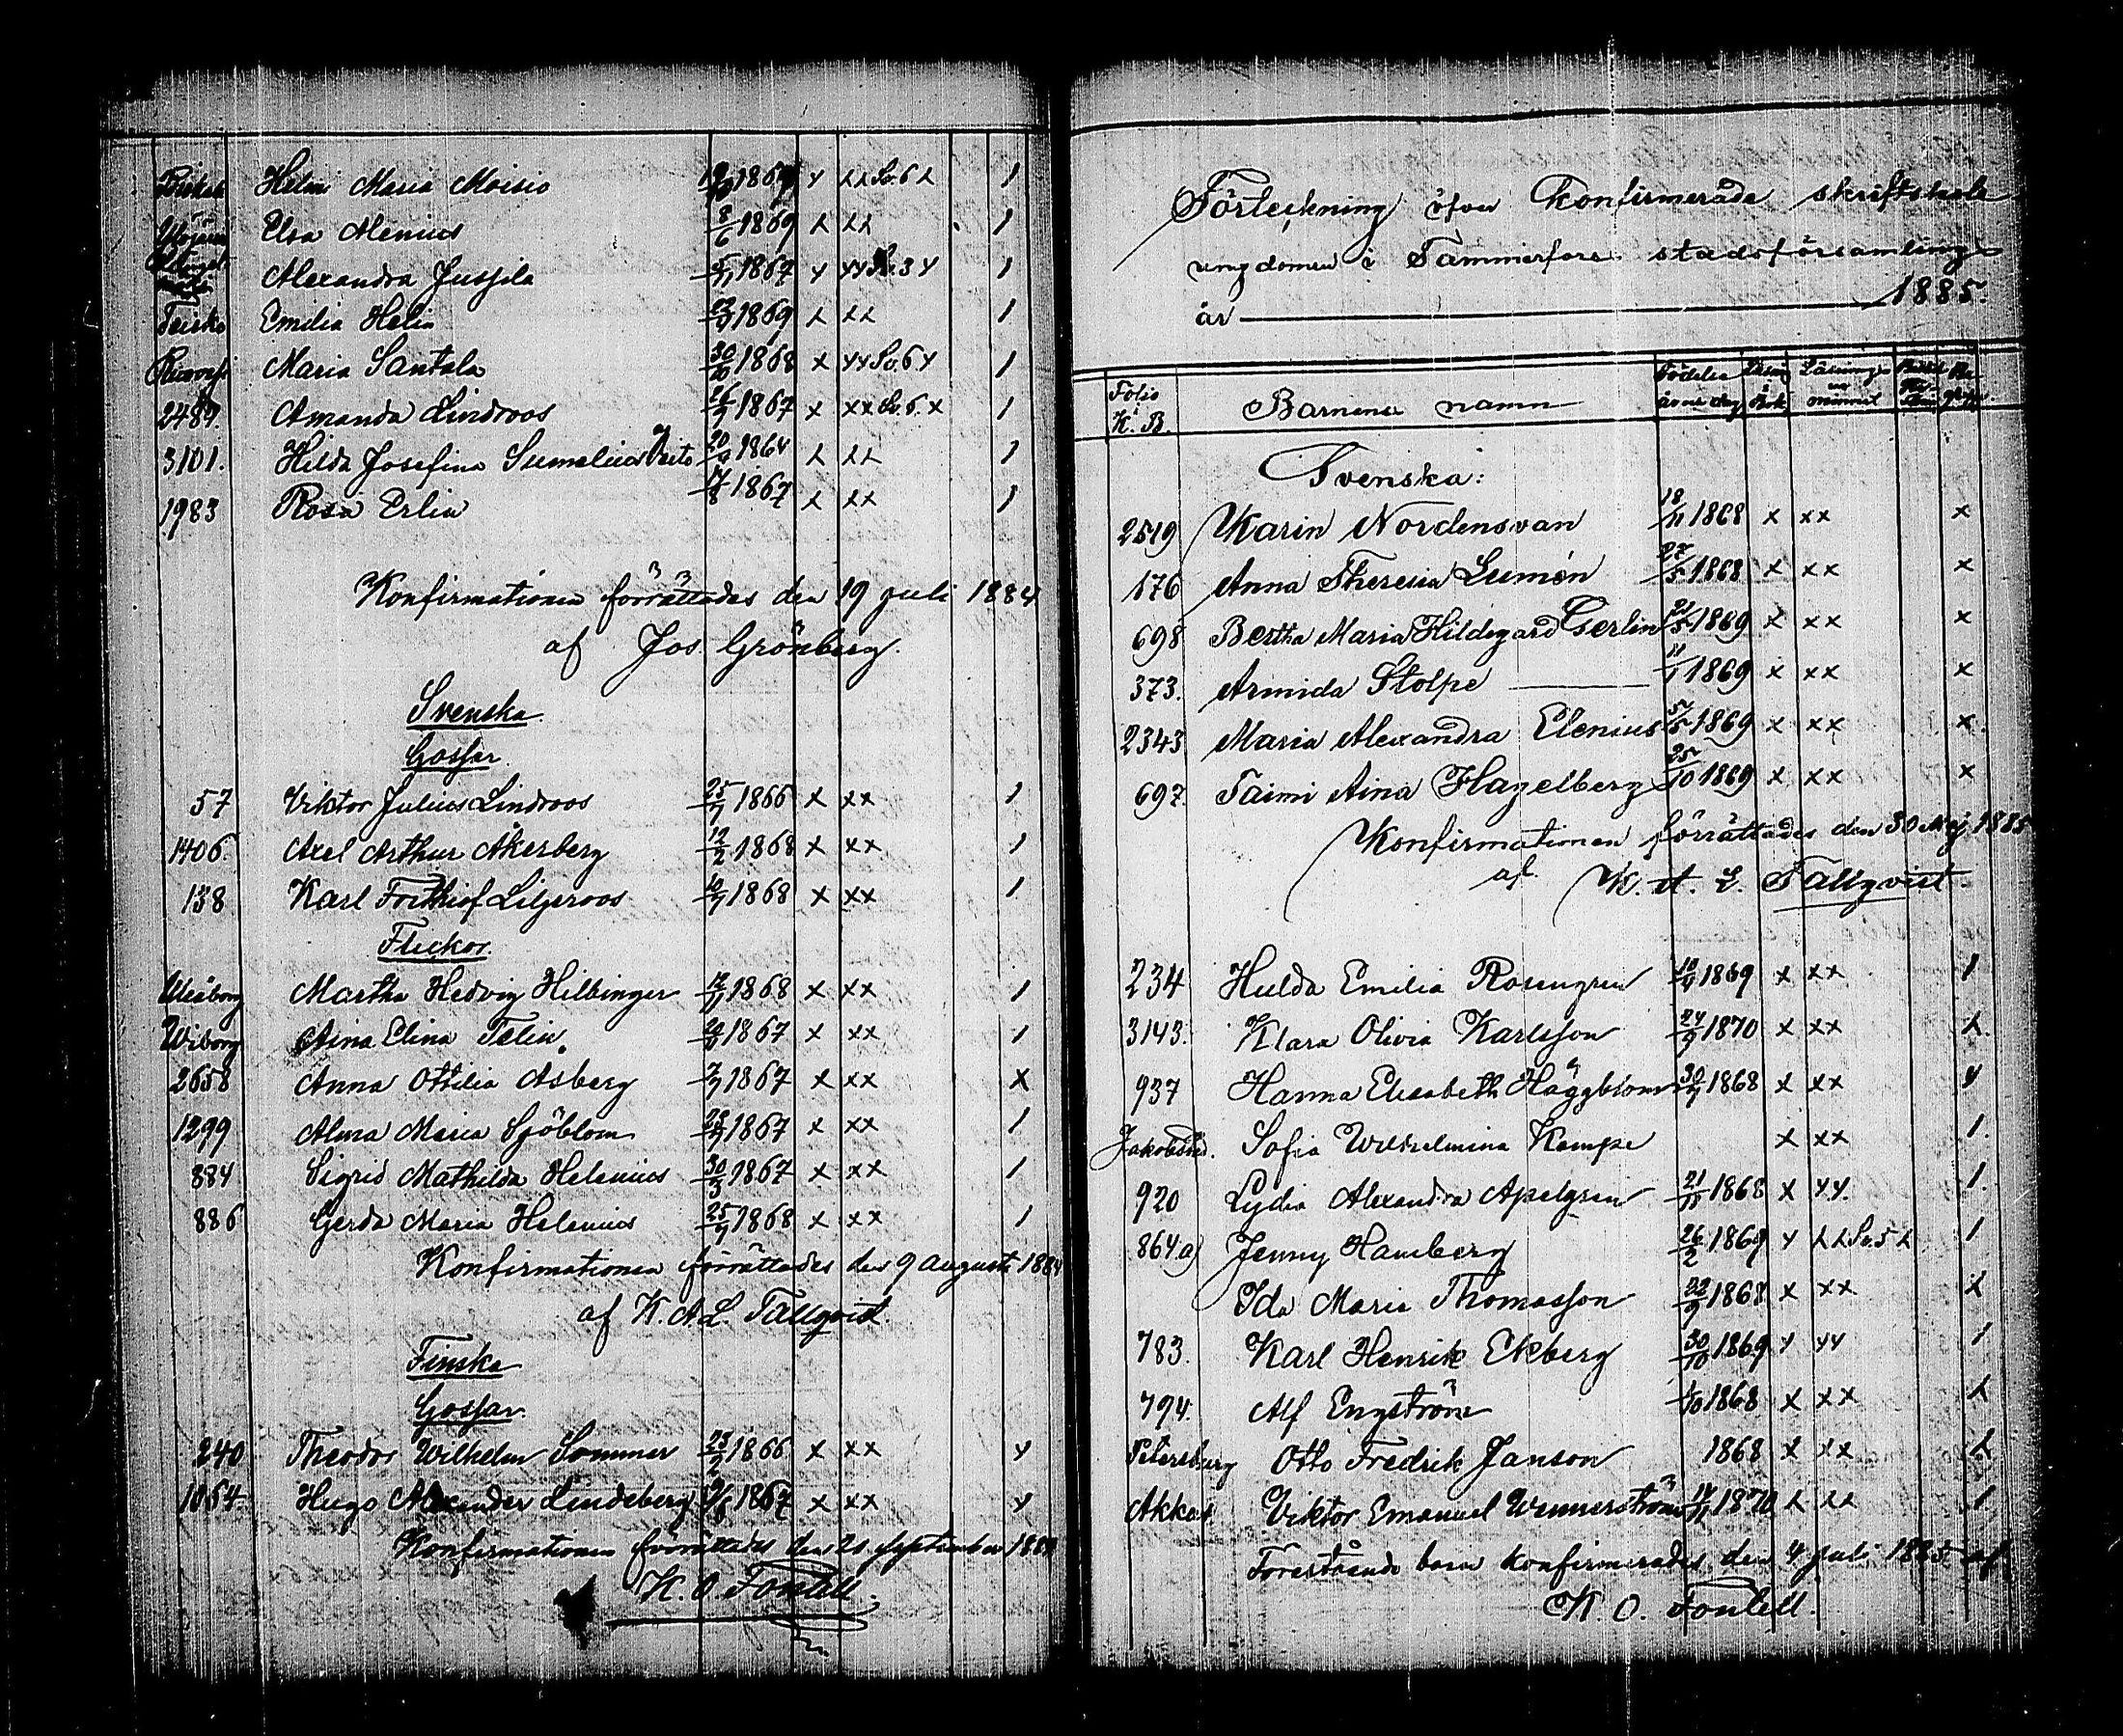 Helmi Maria Moisio 1867 x xx Sv.6 x 1
Elsa Alenius 8/6 1869 x xx 1
Alexandra Jussila 5/11 1867 x xx 3 x 1
Teisko Emilia Helin 1869 x xx 1
Maria Santala 30/10 1868 x xx Sv.6 x 1
2484. Amanda Lindroos 26/9 1867 x xx Sv.6. x 1
3101. Hilda Josefina Sumelius 20/4 1864 x xx 1
1983 Rosa Erlin 17/8 1867 x xx 1
Konfirmationen förrättades den 19 juli 1884
af Jos. Grönberg.
Svenska
Gossar.
57 Viktor Julius Lindroos 25/7 1866 x xx 1
1406. Axel Arthur Åkerberg 12/2 1868 x xx 1
138 Karl Forthiof Liljeroos 10/7 1868 x xx 1
Flickor.
Uleåborg Martha Hedvig Hilbinger 12/11 1868 x xx 1
Wiborg Aina Elina Telin 1867 x xx 1
2658 Anna Ottilia Åsberg 7/7 1867 x xx x
1299 Alma Maria Sjöblom 1867 x xx 1
884 Sigrid Mathilda Helenius 30/3 1867 x xx 1
886 Gerda Maria Helenius 25/9 1868 x xx 1
Konfirmationen förrättades den 9 augusti 1884
af K. A. L. Tallqvist.
Finska
Gossar.
240 Theodor Wilhelm Sommer 23/2 1866 x xx x
1054. Hugo Alexander Lindeberg 1867 x xx x
Konfirmationen förrättades den 21 september 1884
K. O. Fontell.
Förteckning öfver Konfirmerade skriftskole
ungdomen i Tammerfors stadsförsamling
år 1885.
Folio K. B. Barnens namn Födelse år och dag Läsning i Bok Läsning ur minnet
Svenska:
2519 Karin Nordensvan 18/11 1868 x xx x
176 Anna Theresia Lumén 27/5 1868 x xx x
698 Bertha Maria Hildegard Cserlin 21/5 1869 x xx x
373. Armida Stolpe 11/1 1869 x xx x
2343 Maria Alexandra Elenius 5/5 1869 x xx x
697. Taimi Aina Hagelberg 25/10 1869 x xx x
Konfirmationen förrättades den 30 Maj 1885
af K. A. L. Tallqvist.
234 Hulda Emilia Rosengren 1869 x xx 1
3143. Klara Olivia Karlsson 24/9 1870 x xx x
937 Hanna Elisabeth Häggblom 30/7 1868 x xx x
Jakobstad. Sofia Wilhelmina Kempe x xx 1.
920 Lydia Alexandra Apelgren 21/11 1868 x xx 1.
864a) Jenny Hamberg 26/2 1869 x xx Sv.5 x 1
Ida Maria Thomasson 22/9 1868 x xx x
783. Karl Henrik Ekberg 30/10 1869 x xx 1
794. Alf Engström 1/10 1868 x xx x
Petersburg Otto Fredrik Janson 1868 x xx x
Akkas Viktor Emanuel Wennerström 14/11 1870 x xx 1
Förestående barn konfirmerades den 4 juli 1885 af
K. O. Fontell.